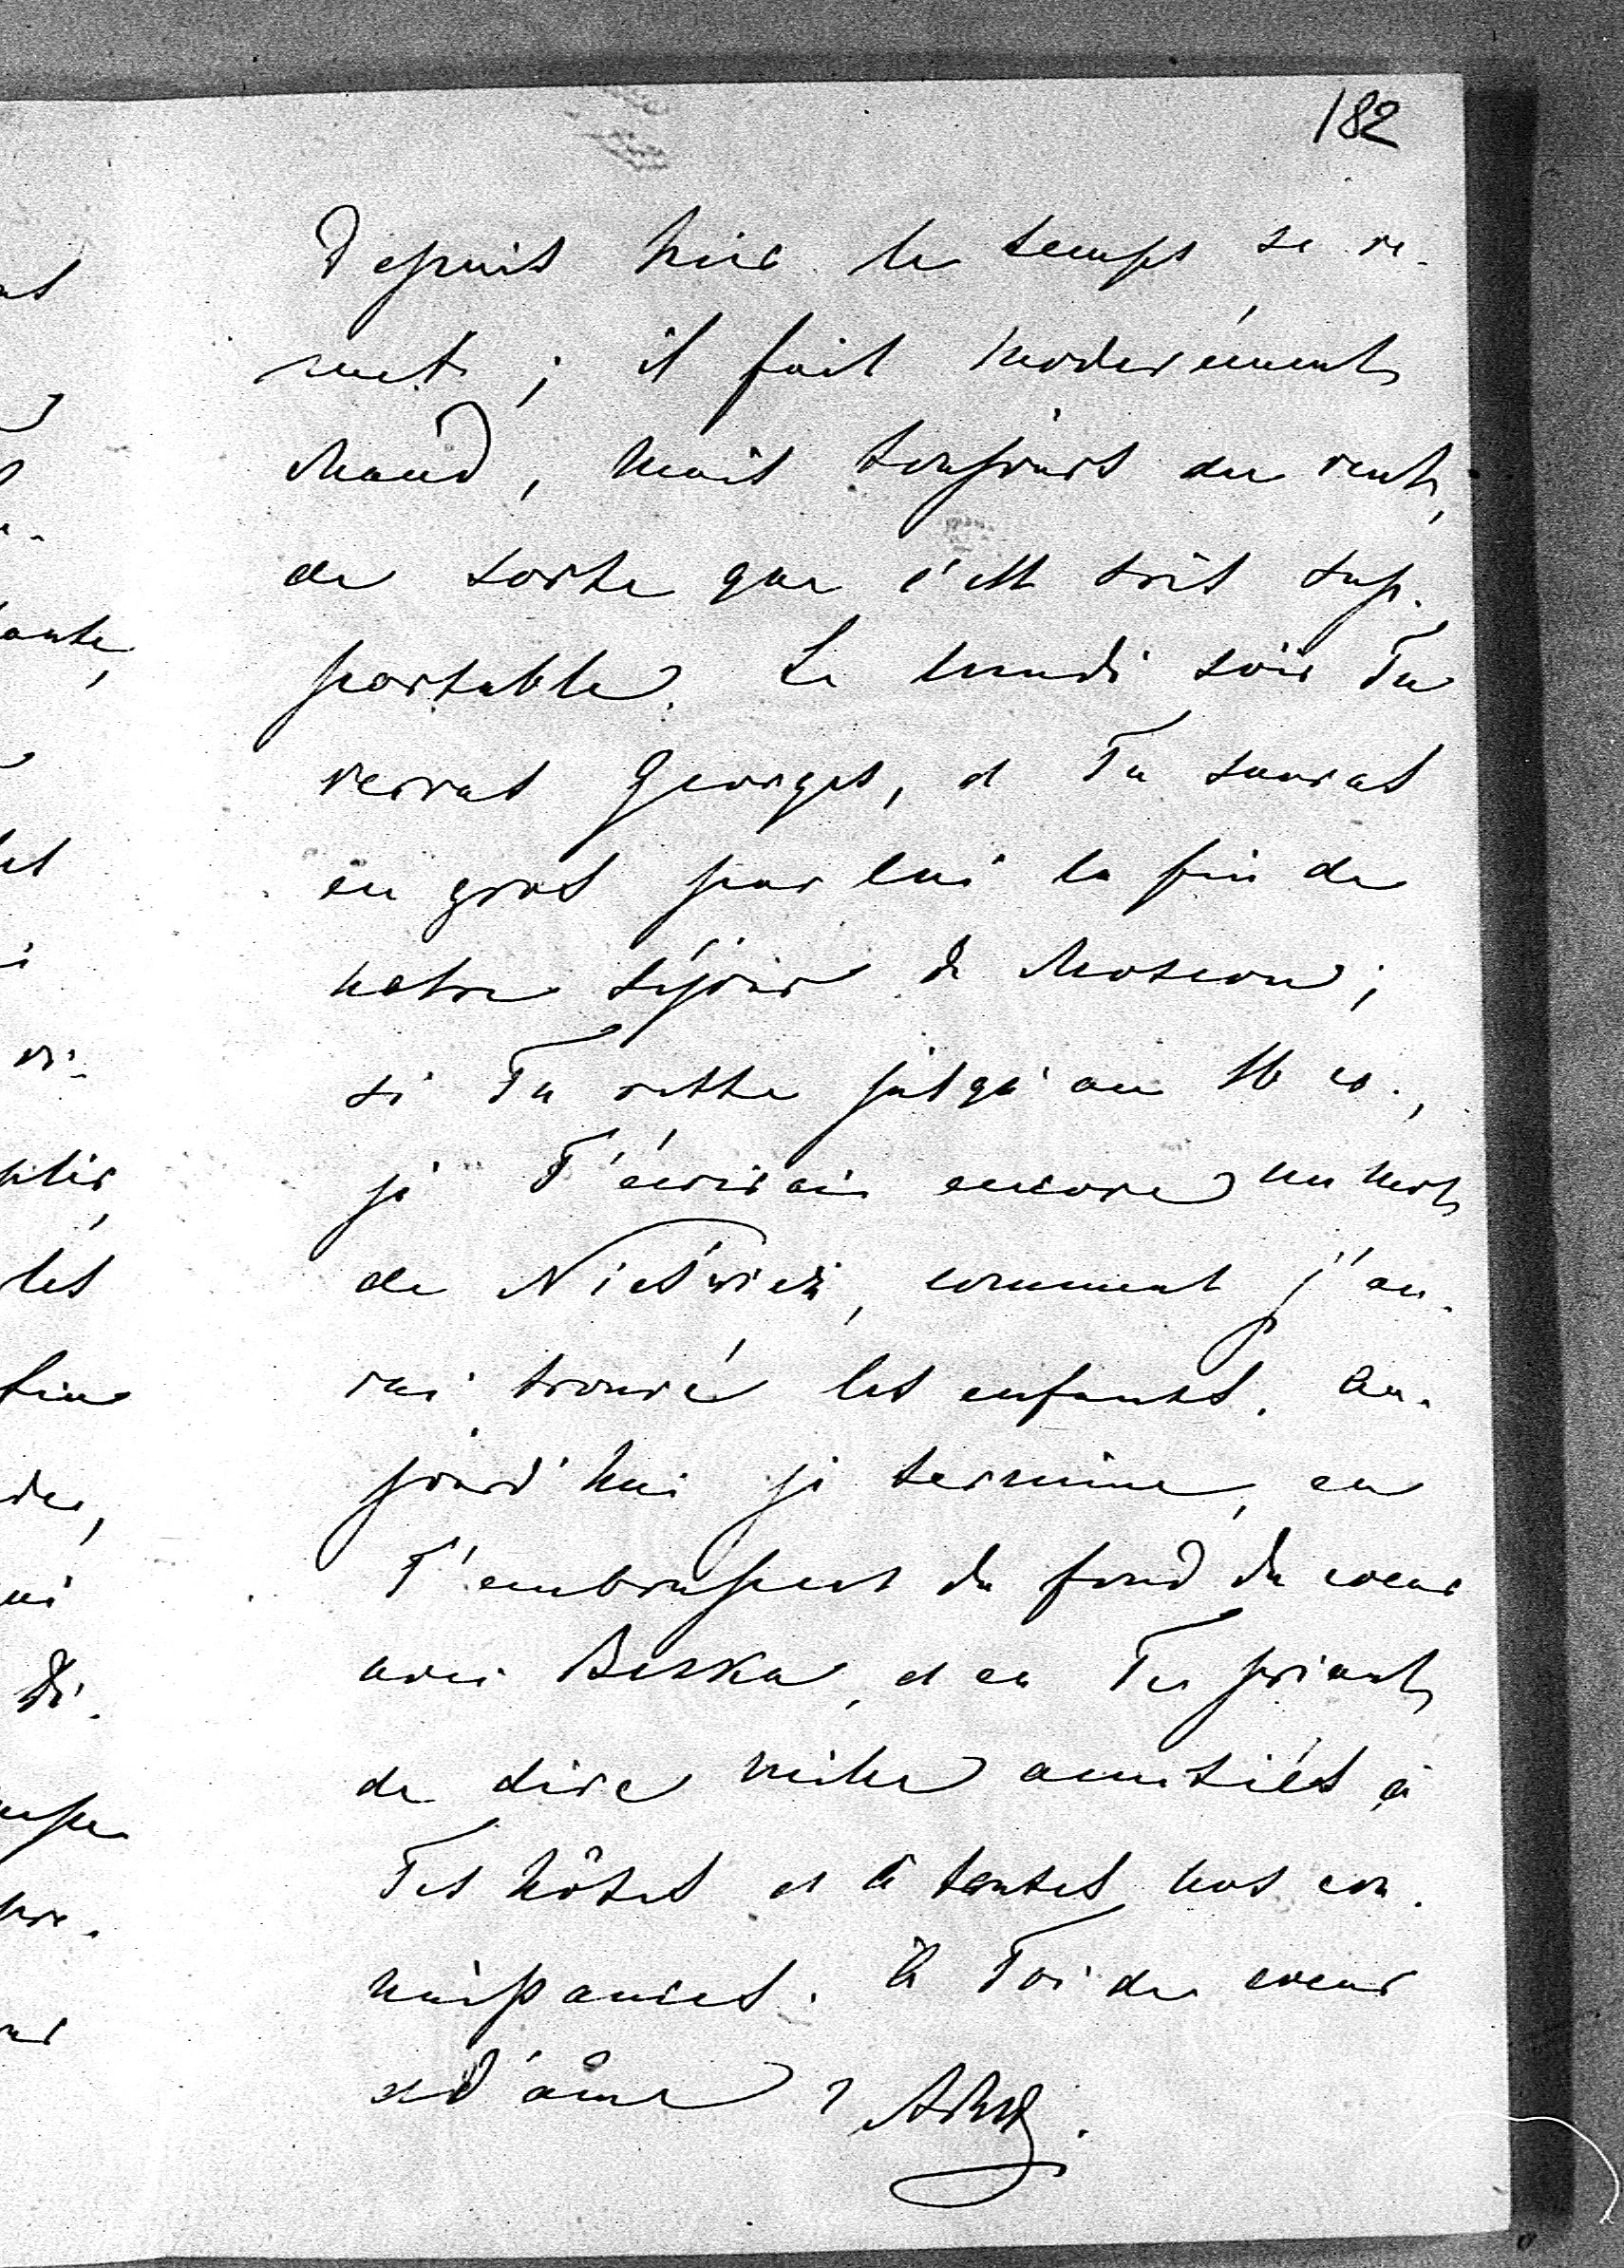 182
Depuis hier le temps se re-
met ; il fait moderément
chaud, mais toujours du vent,
de sorte que c'est très sup-
portable. Le lundi soir Tu
verras Georges, et Tu sauras
en gros par lui la fin de
notre séjour de Moscou ;
si Tu reste jusqu'au 16 co.,
je T'écrirai encore un mot
de Nieśwież, comment j'au-
rai trouvé les enfants. Au-
jourd'hui je termine, en
T'embrassant du fond du coeur
avec Biszka, et en Te priant
de dire mille amitiés à
Tes hôtes et à toutes nos con-
naissances. à Toi de coeur
et d'âme